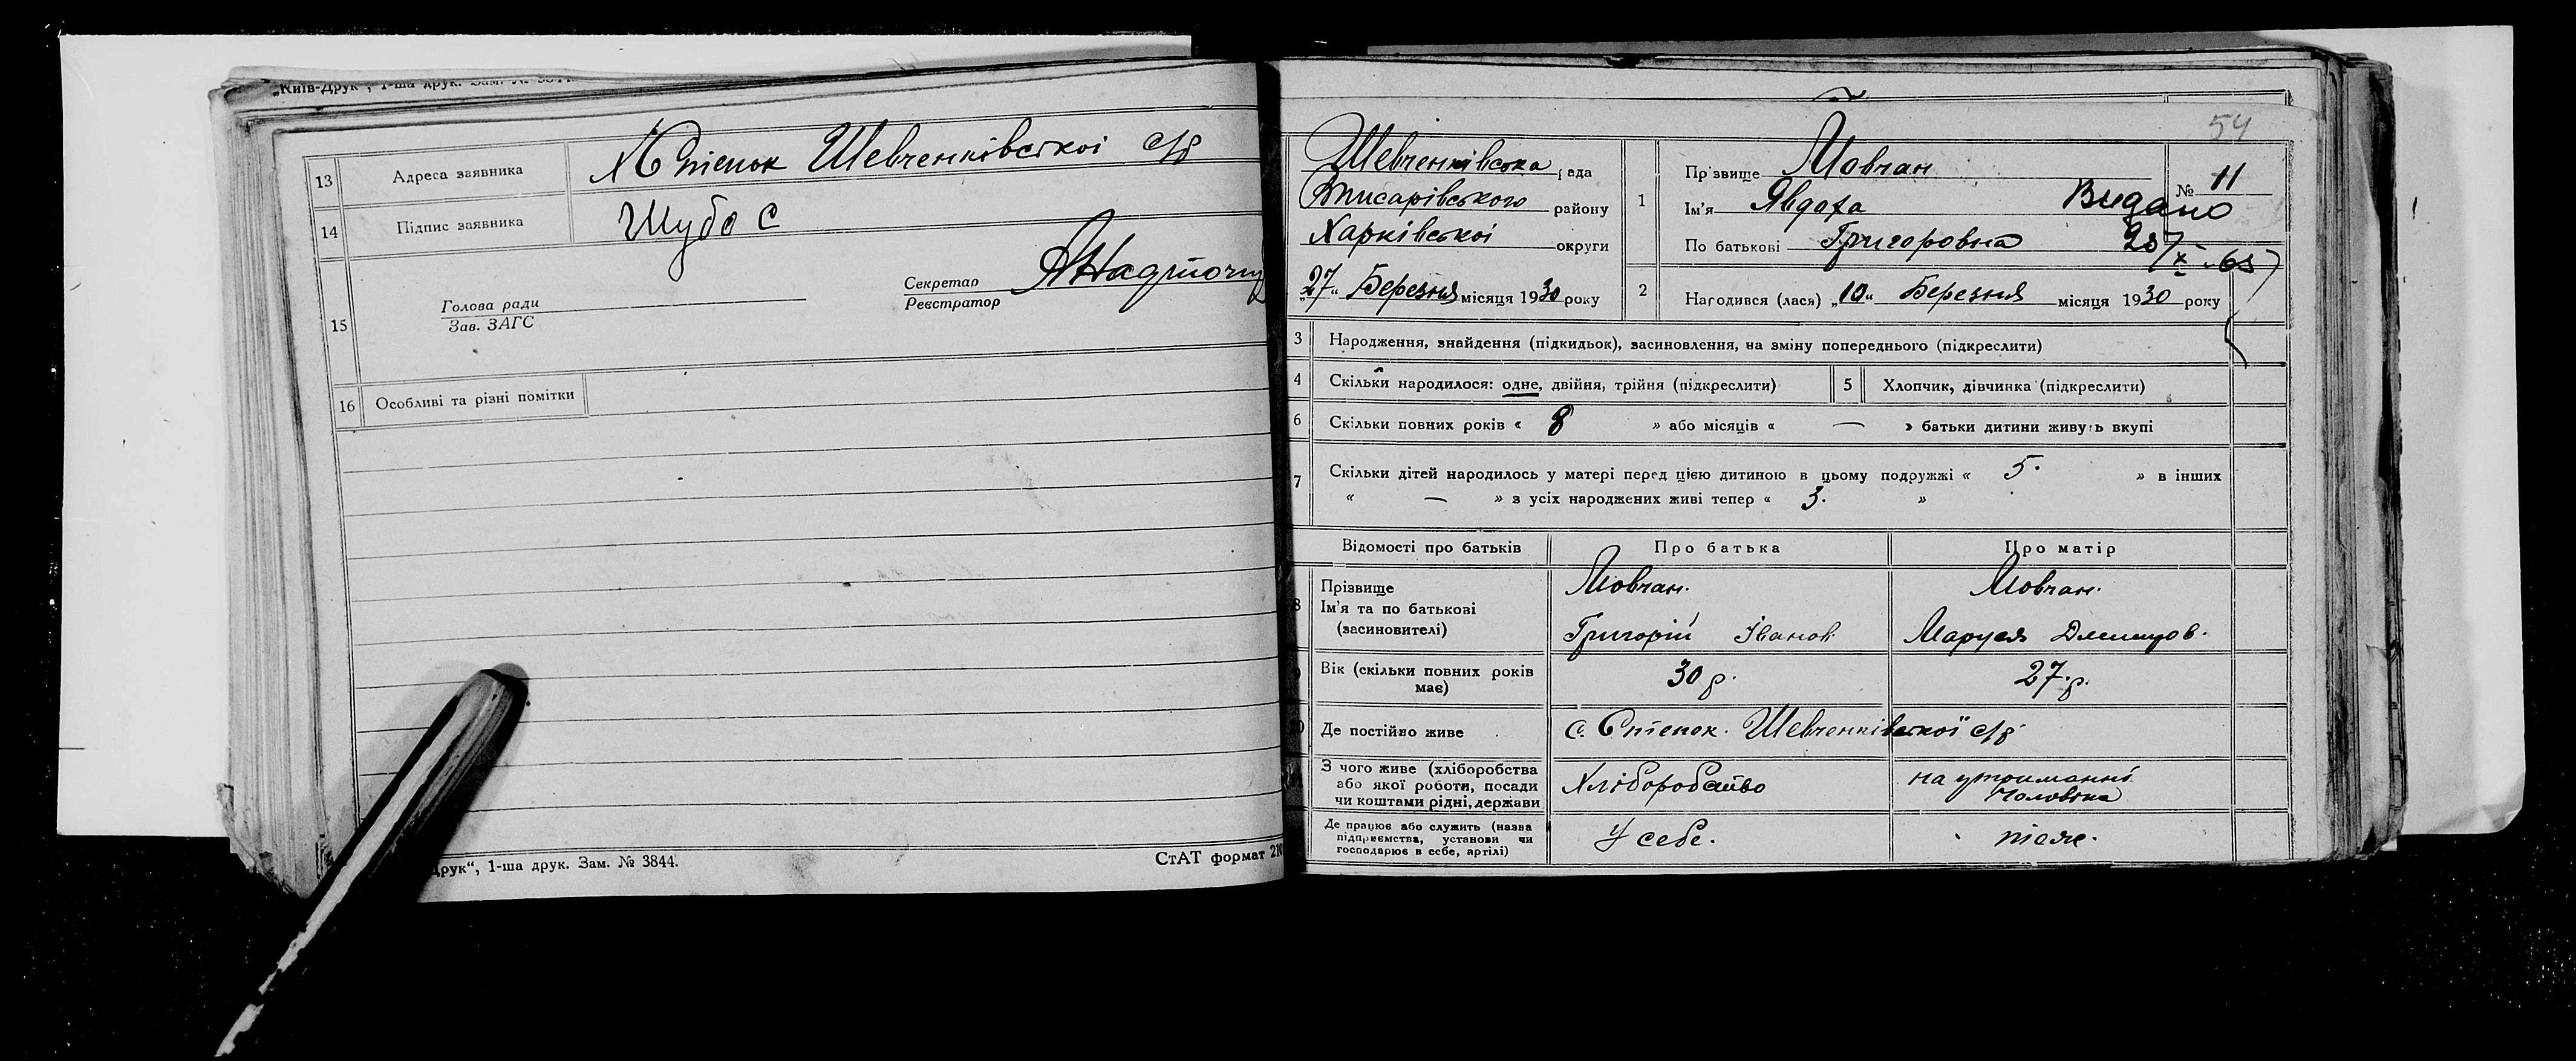 „Київ-Друк", 1-ша друк. Зам. №
13 Адреса заявника х Степок Шевченківської с/р
14 Підпис заявника Шубо С
15 Голова ради
Зав. ЗАГС
Секретар
Реєстратор
16 Особливі та різні помітки
Друк“, 1-ша друк. Зам. № 3844.
СтАТ формат 210
54
Шевченківська рада
Вписарівського району
Харківської округи
„27“ Березня місяця 1930 року
1 Прізвище Мовчан
№ 11
Ім'я Явдоха
Видано
По батькові Григоровна
28/X-65
2 Народився (лася) „10“ Березня місяця 1930 року
3 Народження, знайдення (підкидьок), засиновлення, на зміну попереднього (підкреслити)
4 Скільки народилося: одне, двійня, трійня (підкреслити)
5 Хлопчик, дівчинка (підкреслити)
6 Скільки повних років « 8 » або місяців « — » батьки дитини живуть вкупі
7 Скільки дітей народилось у матері перед цією дитиною в цьому подружжі « 5. » в інших
« — » з усіх народжених живі тепер « 3. »
Відомості про батьків Про батька Про матір
8 Прізвище
Ім'я та по батькові
(засиновителі)
Мовчан. Мовчан.
Григорій Іванов. Маруся Дмитров.
Вік (скільки повних років
має)
30 р. 27 р.
Де постійно живе с. Степок. Шевченківської с/р
З чого живе (хліборобства
або якої роботи, посади
чи коштами рідні, держави
Хліборобство
на утриманні
чоловіка
Де працює або служить (назва
підприємства, установи чи
господарює в себе, артілі)
У себе. теж.